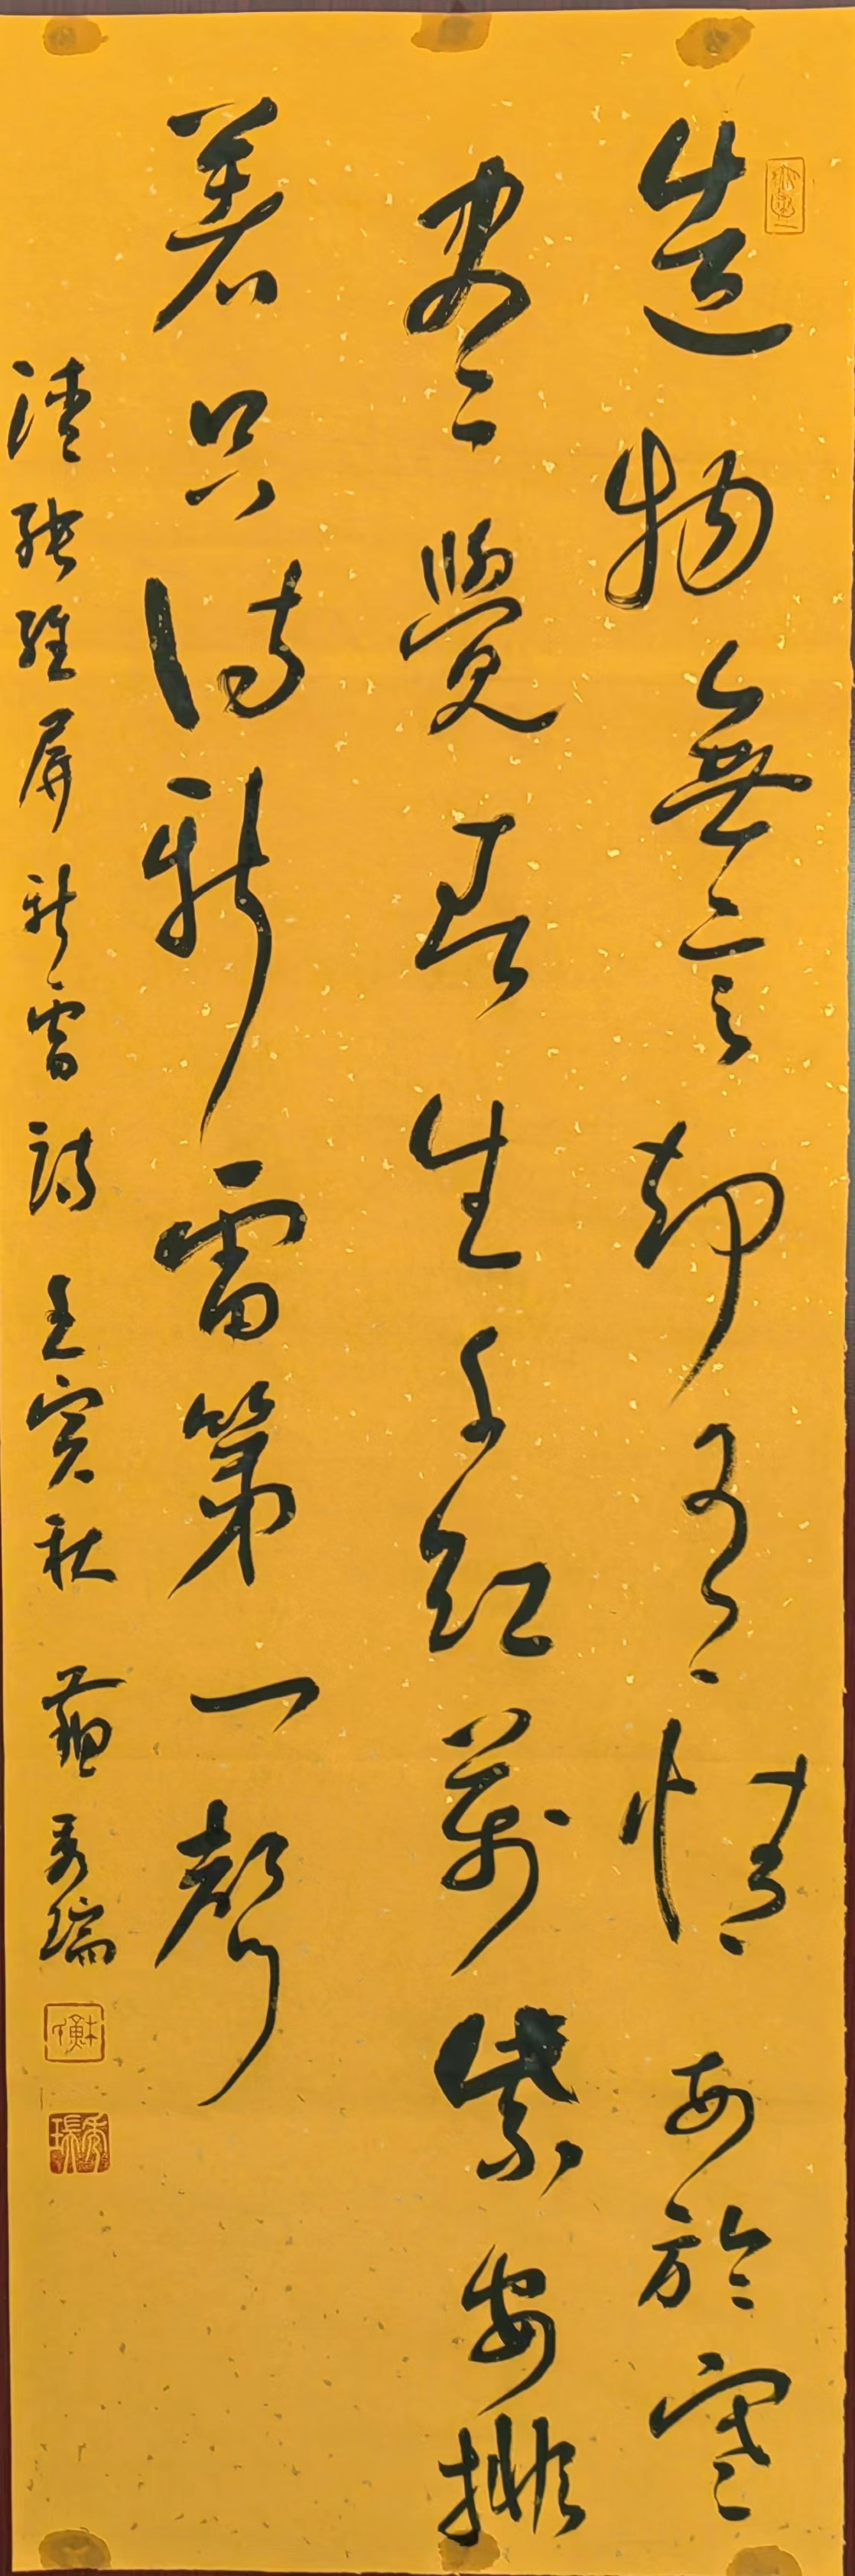 造物無言却有情每於寒
盡覺春生千紅萬紫安排
著只待新雷第一聲
清張維屏新雷詩 壬寅秋 蘇秀瑞